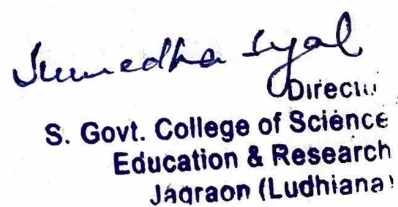 Sumedha Syal
Director
S. Govt. College of Science
Education & Research
Jagraon (Ludhiana)